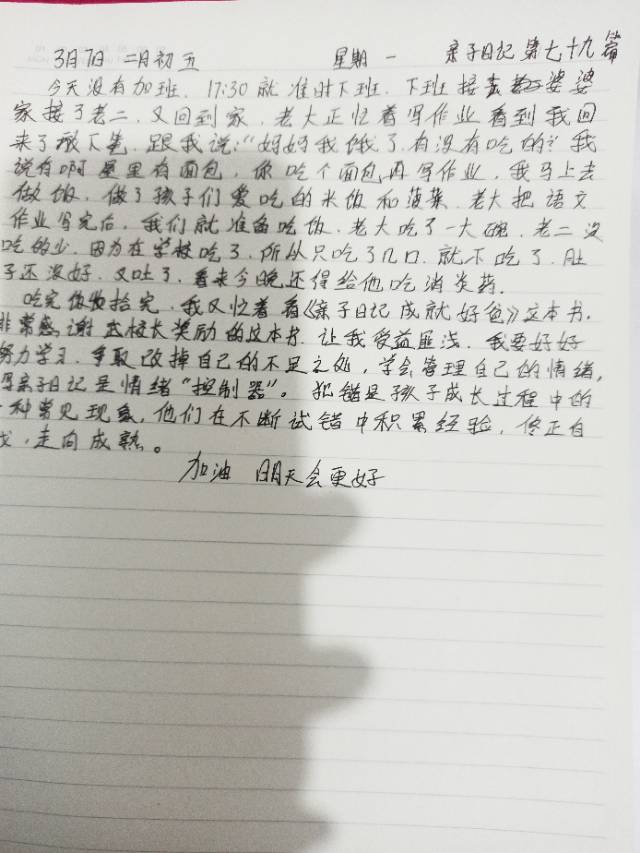 3月7日 二月初五 星期一 亲子日记第七十九篇
今天没有加班，17:30就准时下班，下班接去婆婆
家接了老二，又回到家，老大正忙着写作业看到我回
来了放下笔，跟我说：“妈妈我饿了，有没有吃的？我
说有啊屋里有面包，你吃个面包再写作业，我马上去
做饭，做了孩子们爱吃的米饭和菠菜，老大把语文
作业写完后，我们就准备吃饭，老大吃了一大碗，老二没
吃的少，因为在学校吃了，所以只吃了几口，就不吃了，肚
子还没好，又吐了，看来今晚还得给他吃消炎药。
吃完饭收拾完，我又忙着看《亲子日记成就好爸》这本书，
非常感谢武校长奖励的这本书，让我受益匪浅，我要好好
努力学习，争取改掉自己的不足之处，学会管理自己的情绪，
写亲子日记是情绪“控制器”。犯错是孩子成长过程中的
一种常见现象，他们在不断试错中积累经验，修正自
我，走向成熟。
加油 明天会更好